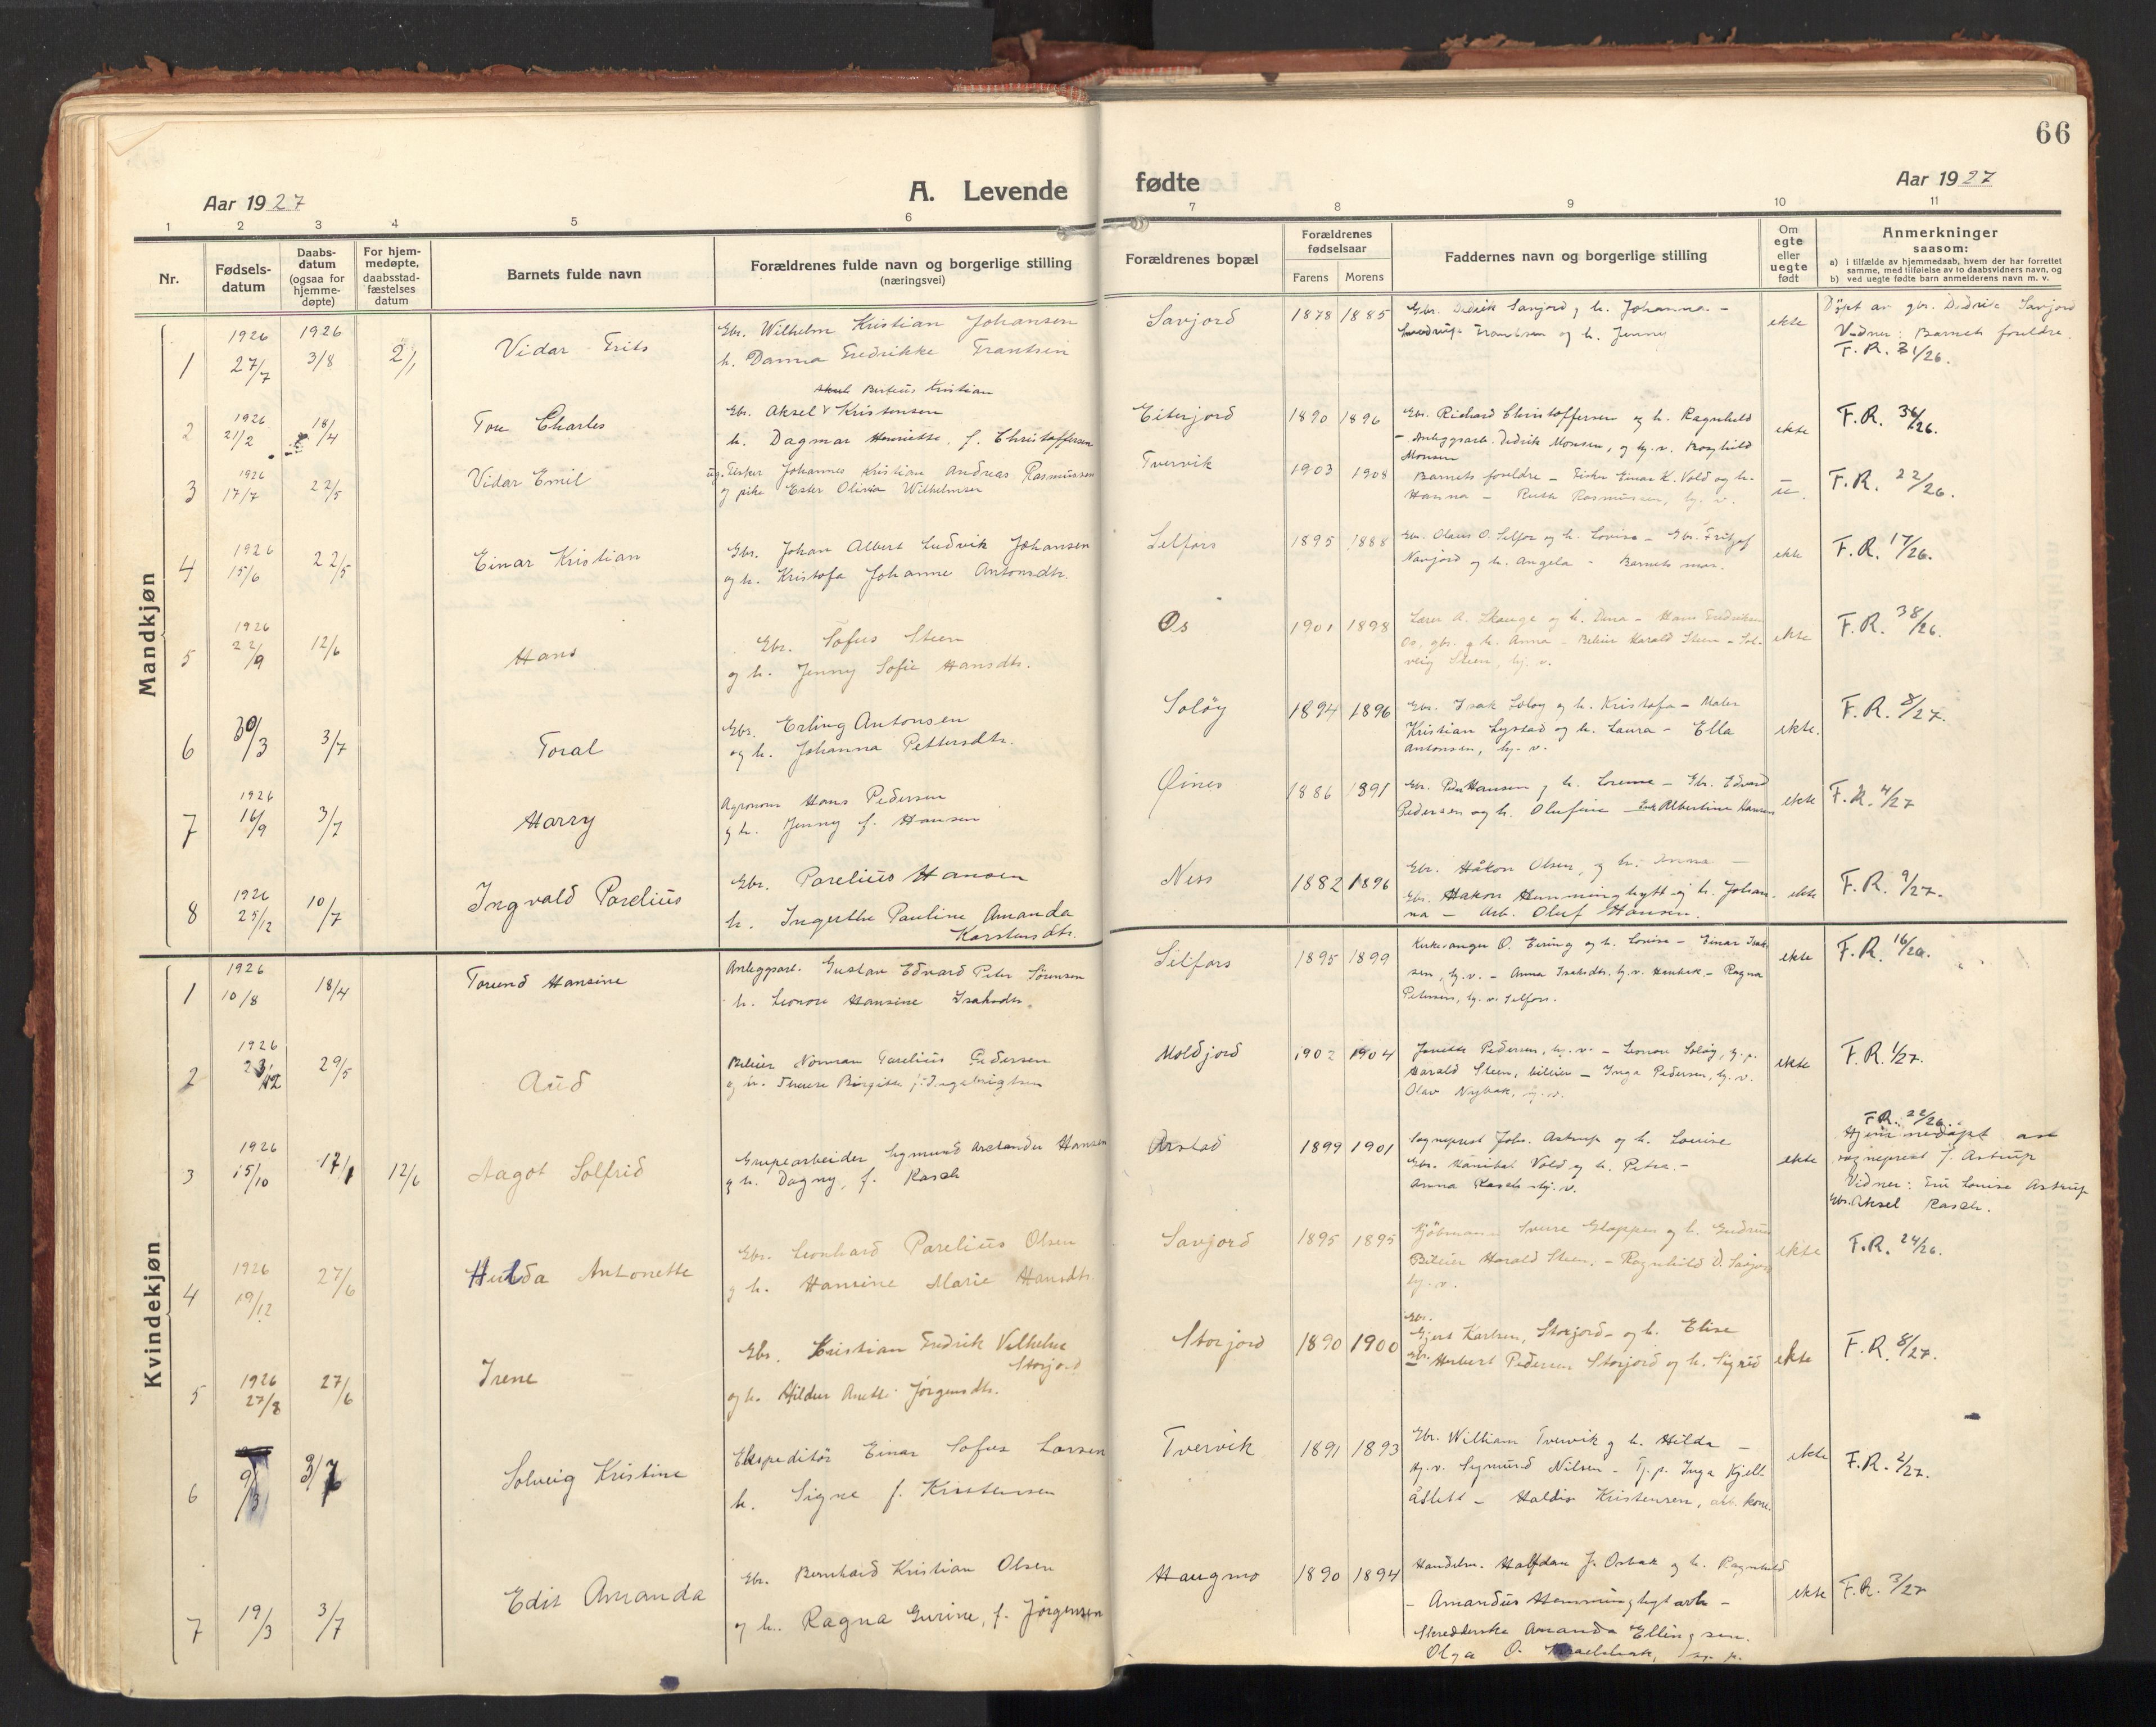 66
Aar 1927
A. Levende
fødte
Aar 1927
1 2 3 4 5 6 7 8 9 10 11
Nr.
Fødsels-
datum
Daabs-
datum
(ogsaa for
hjemme-
døpte)
For hjem-
medøpte,
daabsstad-
fæstelses
datum
Barnets fulde navn
Forældrenes fulde navn og borgerlige stilling
(næringsvei)
Forældrenes bopæl
Forældrenes
fødselsaar
Farens Morens
Faddernes navn og borgerlige stilling
Om
egte
eller
uegte
født
Anmerkninger
saasom:
a) i tilfælde av hjemmedaab, hvem der har forrettet
samme, med tilføielse av to daabsvidners navn, og
b) ved uegte fødte barn anmelderens navn m. v.
Mandkjøn
1 1926 27/7 1926 3/8 2/1 Vidar Frits
Gbr. Wilhelm Kristian Johansen
h. Danna Fredrikke Frantsen
Savjord 1878 1885
Gbr. Didrik Savjord og h. Johanna -
Frantsen og h. Jenny
ekte
Døpt av gbr. Didrik Savjord
Vidner: Barnets foreldre.
F.R. 31/26.
2 1926 21/2 18/4 Tore Charles
Berteus Kristian
Gbr. Aksel Kristensen
h. Dagmar Henriette, f. Christoffersen
Eiterjord 1890 1896
Gbr. Richard Christoffersen og h. Ragnhild
- Anleggsarb. Didrik Monsen, og hj.v. Borghild
Monsen
ekte
F.R. 36/26.
3 1926 17/7 22/5 Vidar Emil
ug. Fisker Johannes Kristian Andreas Rasmussen
og pike Ester Olivia Wilhelmsen
Tvervik 1903 1908
Barnets foreldre - Fisker Einar K. Vold og h.
Hanna - Ruth Rasmussen, hj. v.
u.
F.R. 22/26.
4 1926 15/6 22/5 Einar Kristian
Gbr. Johan Albert Ludvik Johansen
og h. Kristofa Johanne Antonsdtr.
Selfors 1895 1888
Gbr. Olaus O. Selfor og h. Lovise - Gbr. Fritjof
Navjord og h. Angela - Barnets mor.
ekte
F.R. 17/26.
5 1926 22/9 12/6 Hans
Gbr. Sofus Steen
og h. Jenny Sofie Hansdtr.
Os 1901 1898
Lærer A. Skauge og h. Dina - Hans Fredriksen
Os, gbr. og h. Anna - Bileier Harald Steen - Sol-
veig Steen, hj. v.
ekte
F.R. 38/26.
6 30/3 3/7 Toral
Gbr. Erling Antonsen
og h. Johanna Pettersdtr.
Soløy 1894 1896
Gbr. Isak Soløy og h. Kristofa - Maler
Kristian Lystad og h. Laura - Ella
Antonsen, hj. v.
ekte.
F.R. 8/27.
7 1926 16/9 3/7 Harry
Agronom Hans Pedersen
og h. Jenny f. Hansen
Øines 1886 1891
Gbr. Peder Hansen og h. Lorense - Gbr. Edvard
Pedersen og h. Olufine - Albertine Hansen
ekte
F.R. 4/27
8 1926 25/12 10/7 Ingvald Parelius
Gbr. Parelius Hansen
h. Ingerthe Pauline Amanda
Karstensdtr.
Ness 1882 1896
Gbr. Håkon Olsen, og h. Anna -
Gbr. Hakon Hemminghytt og h. Johan-
na - Arb. Oluf Hansen.
ekte
F.R. 9/27.
Kvindekjøn
1 1926 10/8 18/4 Torund Hansine
Anleggsarb. Gustav Edvard Peter Sørensen
h. Leonore Hansine Isaksdtr.
Selfors 1895 1899
Kirkesanger O. Eiring og h. Lovise - Einar Isak-
sen, hj.v. - Anna Isaksdtr. hj.v. - Ragna
Petersen, hj. v. Selfors.
ekte
F.R. 16/26.
2 1926 23/12 29/5 Aud
Bileier Norman Parelius Pedersen
og h. Therese Birgitte f. Ingebrigtsen
Moldjord 1902 1904
Jenette Pedersen, hj. v. - Leonore Soløy, hj. p.
Harald Steen, bileier - Inga Pedersen, hj. v.
Olav Nybak, hj. v.
ekte
F.R. 1/27.
3 1926 15/10 17/1 12/6 Aagot Solfrid
Grupearbeider Sigmund Arctander Hansen
og h. Dagny, f. Rasch
Arstad 1899 1901
Sogneprest Johs. Astrup og h. Louise
Gbr. Hanibal Vold og h. Petra. -
Anna Rasch hj. v.
ekte
F.R. 22/26.
Hjemmedøpt av
sogneprest J. Astrup
Vidner: Fru Louise Astrup
Gbr. Aksel Rasch.
4 1926 19/12 27/6 Hulda Antonette
Gbr. Leonhard Parelius Olsen
og h. Hansine Marie Hansdtr.
Savjord 1895 1895
Kjøbmann Sverre Gloppen og h. Gudrun
Bileier Harald Steen. - Ragnhild D. Savjord
hj. v.
ekte
F.R. 24/26.
5 1926 27/8 27/6 Irene
Gbr. Kristian Fredrik Vilhelm
Storjord
og h. Hildur Anette Jørgensdtr.
Storjord 1890 1900
Gbr.
Gjert Karlsen, Storjord - og h. Elise
Gbr. Herbert Pedersen Storjord og h. Sigrid
ekte
F.R. 8/27.
6 9/3 3/7 Solveig Kristine
Ekspeditør Einar Sofus Larsen
h. Signe f. Kristensen
Tvervik 1891 1893
Gbr. William Tvervik og h. Hilda -
hj.v. Sigmund Nilsen - Tj. p. Inga Kjell-
ådlett - Haldis Kristensen, arb. kone.
ekte
F.R. 2/27.
7 19/3 3/7 Edit Amanda
Gbr. Bernhard Kristian Olsen
og h. Ragna Gurine, f. Jørgensen
Haugmo 1890 1894
Handelsm. Halfdan J. Osbak og h. Ragnhild
- Amandus Hemminghyt arb -
Skredderske Amanda Ellingsen.
Olga O.
ekte
F.R. 3/27